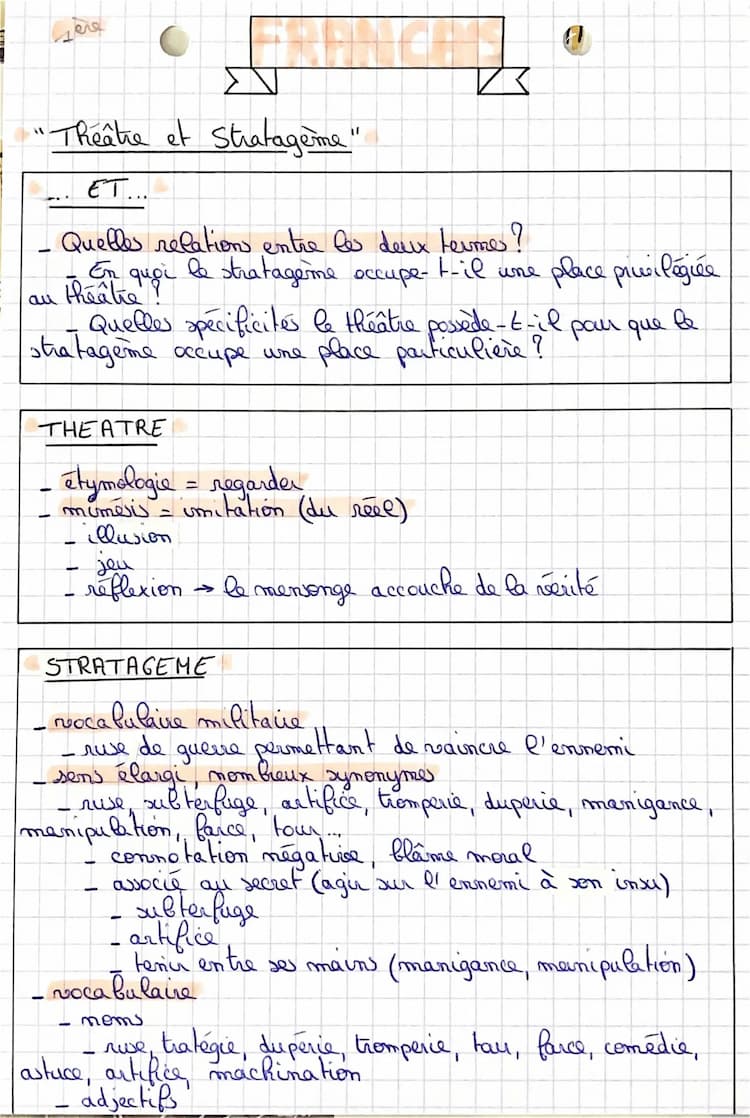 1ère
FRANCAIS
"Théâtre et Stratagème"
... ET...
- Quelles relations entre les deux termes ?
- En quoi le stratagème occupe-t-il une place privilégiée
au théâtre ?
- Quelles spécificités le théâtre possède-t-il pour que le
stratagème occupe une place particulière ?
THEATRE
- étymologie = regarder
- mimésis = imitation (du réel)
- illusion
- jeu
- réflexion → le mensonge accouche de la vérité
STRATAGEME
- vocabulaire militaire
- ruse de guerre permettant de vaincre l'ennemi
- sens élargi, nombreux synonymes
- ruse, subterfuge, artifice, tromperie, duperie, manigance,
manipulation, farce, tour...
- connotation négative, blâme moral
- associé au secret (agir sur l'ennemi à son insu)
- subterfuge
- artifice
- tenir entre ses mains (manigance, manipulation)
- vocabulaire
- noms
- ruse, tratégie, dupérie, tromperie, tou, farce, comédie,
astuce, artifice, machination
- adjectifs